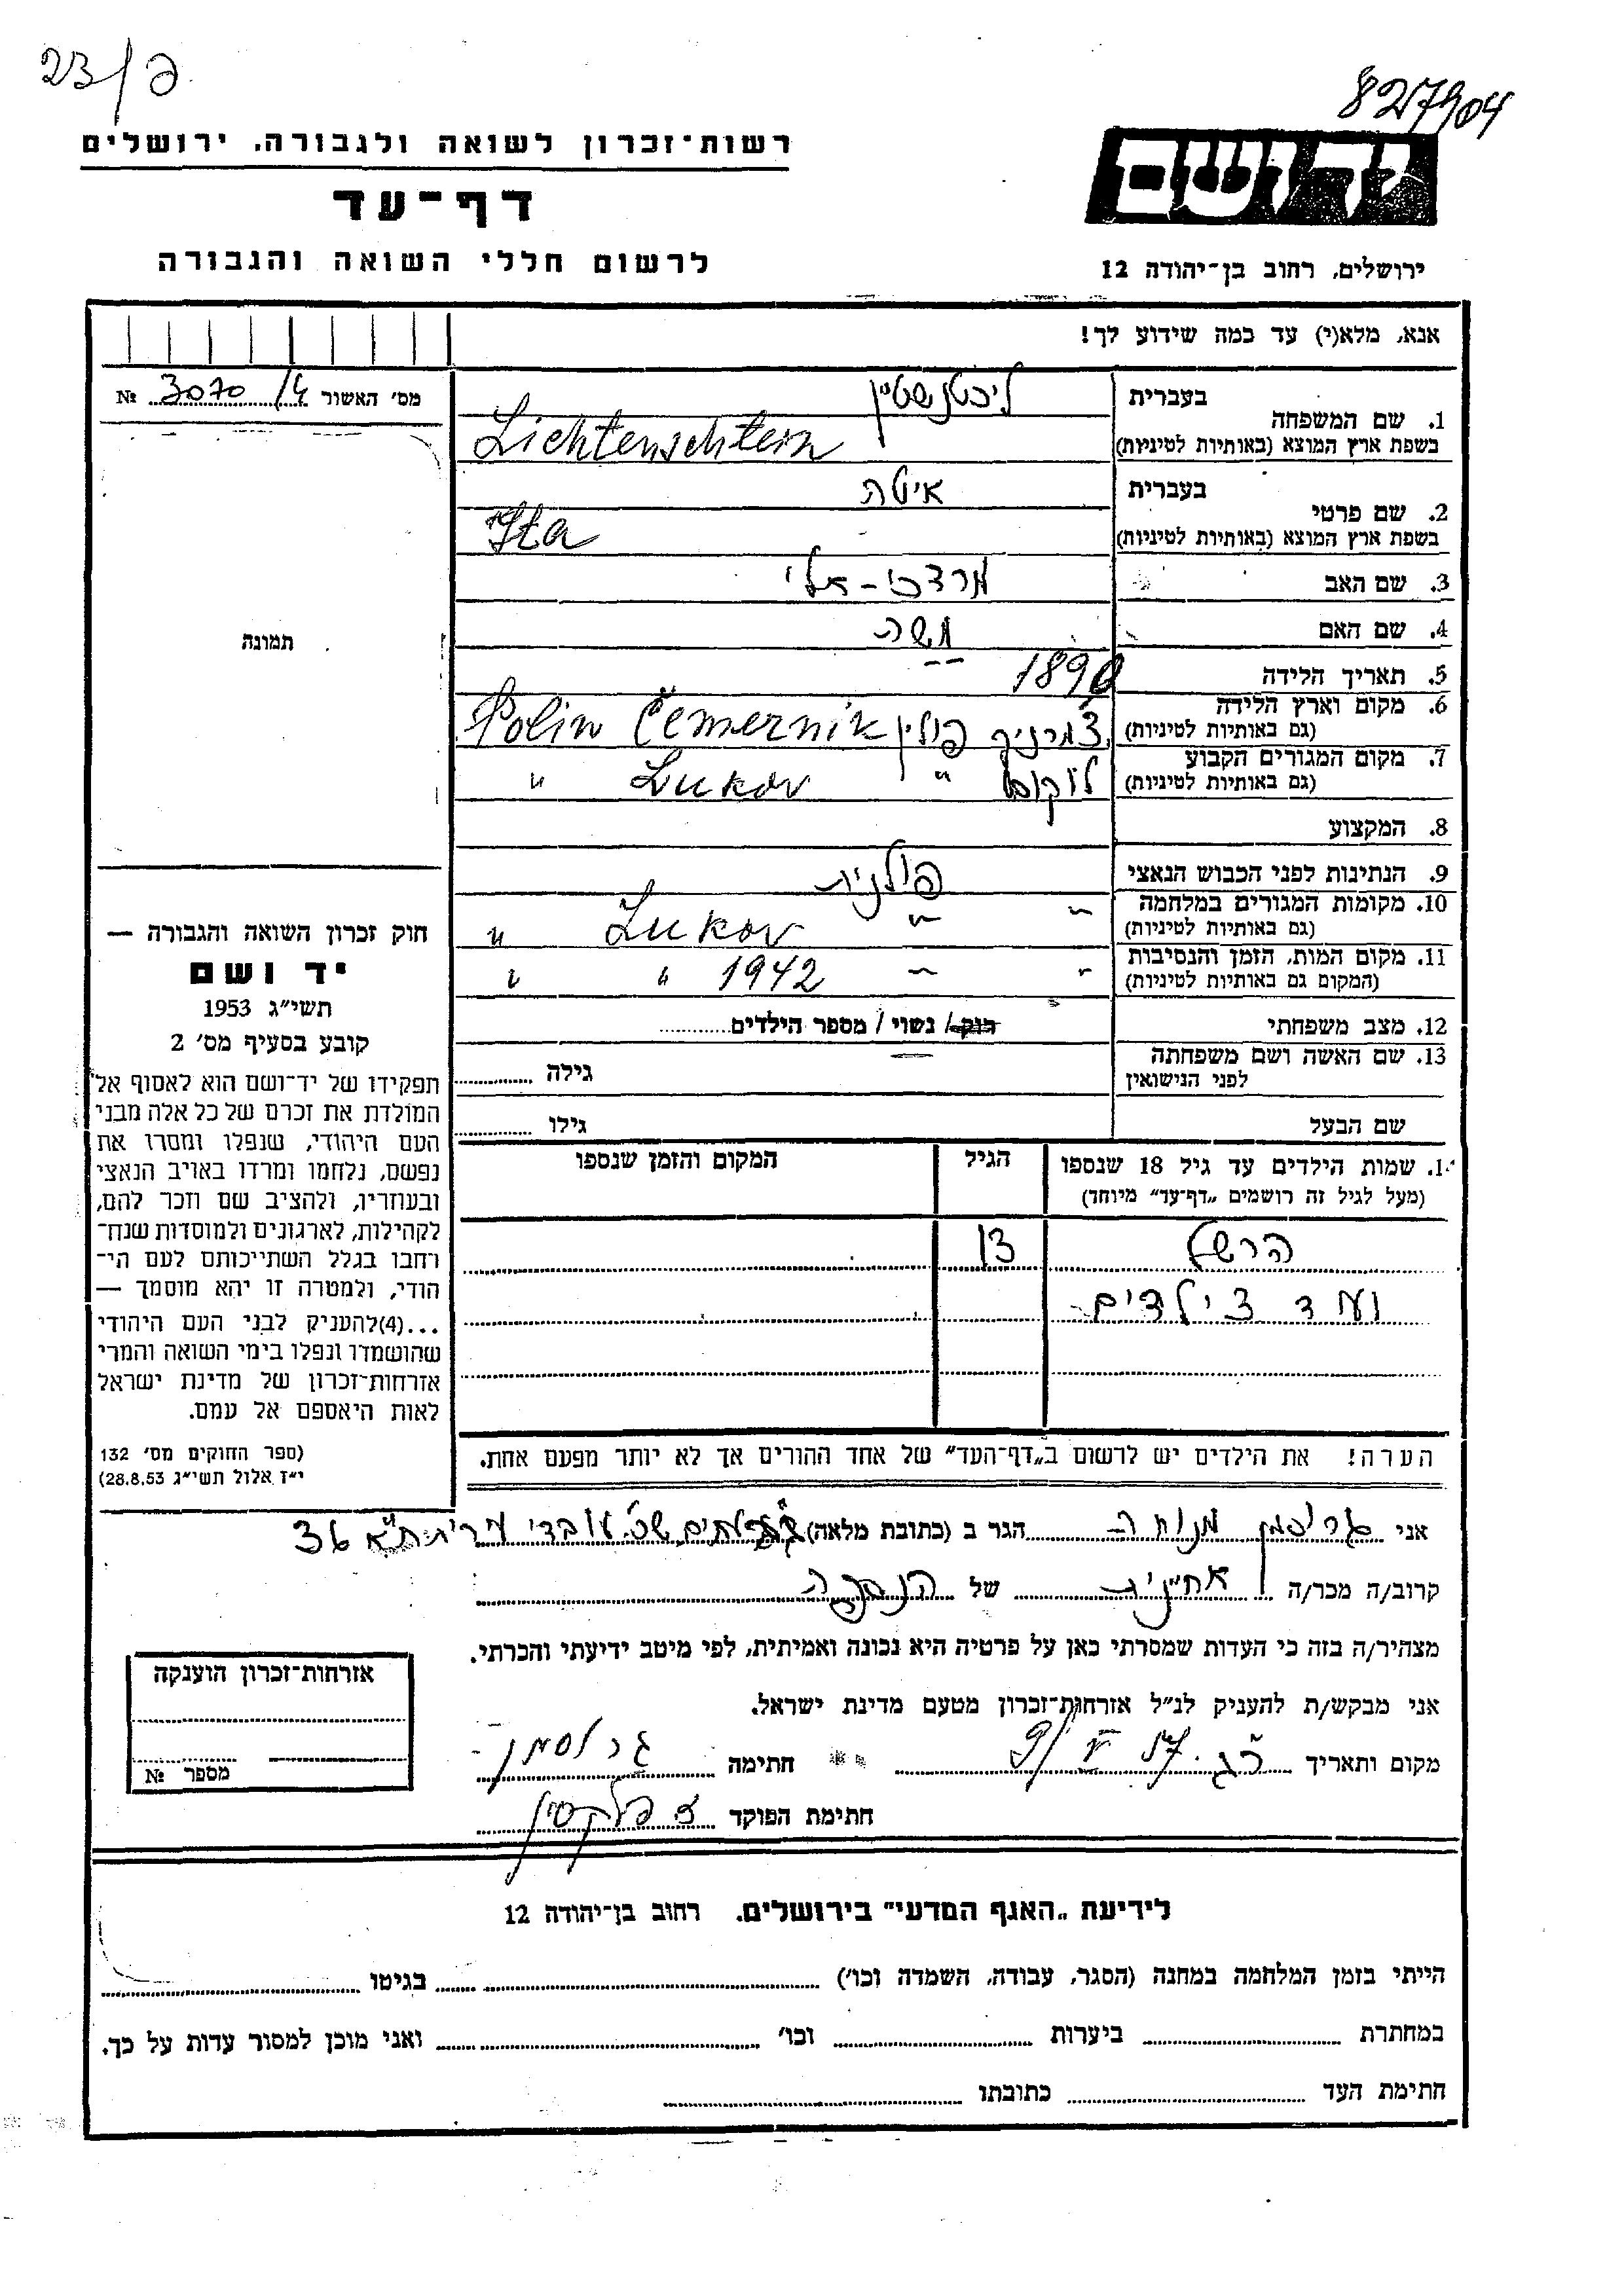 23/פ
827904
רשות־זכרון לשואה ולגבורה, ירושלים
דף־עד
לרשום חללי השואה והגבורה
יד ושם
ירושלים, רחוב בן־יהודה 12
אנא, מלא(י) עד כמה שידוע לך!
מס׳ האשור 3070/4 №
תמונה
1. שם המשפחה
בעברית ליכטנשטיין
בשפת ארץ המוצא (באותיות לטיניות) Lichtenschtein
2. שם פרטי
בעברית איטה
בשפת ארץ המוצא (באותיות לטיניות) Ita
3. שם האב מרדכי - אלי
4. שם האם משה
5. תאריך הלידה 1890
6. מקום וארץ הלידה
(גם באותיות לטיניות) צ'מרניק פולין Čemernik Polin
7. מקום המגורים הקבוע
(גם באותיות לטיניות) לוקוב " Lukov "
8. המקצוע
9. הנתינות לפני הכבוש הנאצי פולנית
10. מקומות המגורים במלחמה
(גם באותיות לטיניות) " " Lukov "
11. מקום המות, הזמן והנסיבות
(המקום גם באותיות לטיניות) " " 1942 " "
12. מצב משפחתי רוק / נשוי / מספר הילדים
13. שם האשה ושם משפחתה
לפני הנישואין
גילה
שם הבעל
גילו
1. שמות הילדים עד גיל 18 שנספו
(מעל לגיל זה רושמים „דף־עד״ מיוחד)
הגיל
המקום והזמן שנספו
הרשל 13
ועד 3 ילדים
הערה! את הילדים יש לרשום ב„דף־העד״ של אחד ההורים אך לא יותר מפעם אחת.
חוק זכרון השואה והגבורה —
יד ושם
תשי״ג 1953
קובע בסעיף מס׳ 2
תפקידו של יד־ושם הוא לאסוף אל
המולדת את זכרם של כל אלה מבני
העם היהודי, שנפלו ומסרו את
נפשם, נלחמו ומרדו באויב הנאצי
ובעוזריו, ולהציב שם וזכר להם,
לקהילות, לארגונים ולמוסדות שנח־
רחבו בגלל השתייכותם לעם הי־
הודי, ולמטרה זו יהא מוסמך —
...(4) להעניק לבני העם היהודי
שהושמדו ונפלו בימי השואה והמרי
אזרחות־זכרון של מדינת ישראל
לאות היאספם אל עמם.
(ספר החוקים מס׳ 132
י״ז אלול תשי״ג 28.8.53)
אני גרוסמן מנוחה הגר ב (כתובת מלאה) שכ' עובדי עירית ת"א 36
קרוב/ה מכר/ה אחיינית של הנספה
מצהיר/ה בזה כי העדות שמסרתי כאן על פרטיה היא נכונה ואמיתית, לפי מיטב ידיעתי והכרתי.
אני מבקש/ת להעניק לנ״ל אזרחות־זכרון מטעם מדינת ישראל.
מקום ותאריך 9/V 57 חתימה גרוסמן
חתימת הפוקד
אזרחות־זכרון הוענקה
מספר №
לידיעת „האגף המדעי״ בירושלים. רחוב בן־יהודה 12
הייתי בזמן המלחמה במחנה (הסגר, עבודה, השמדה וכו׳) בגיטו
במחתרת ביערות וכו׳ ואני מוכן למסור עדות על כך.
חתימת העד כתובתו